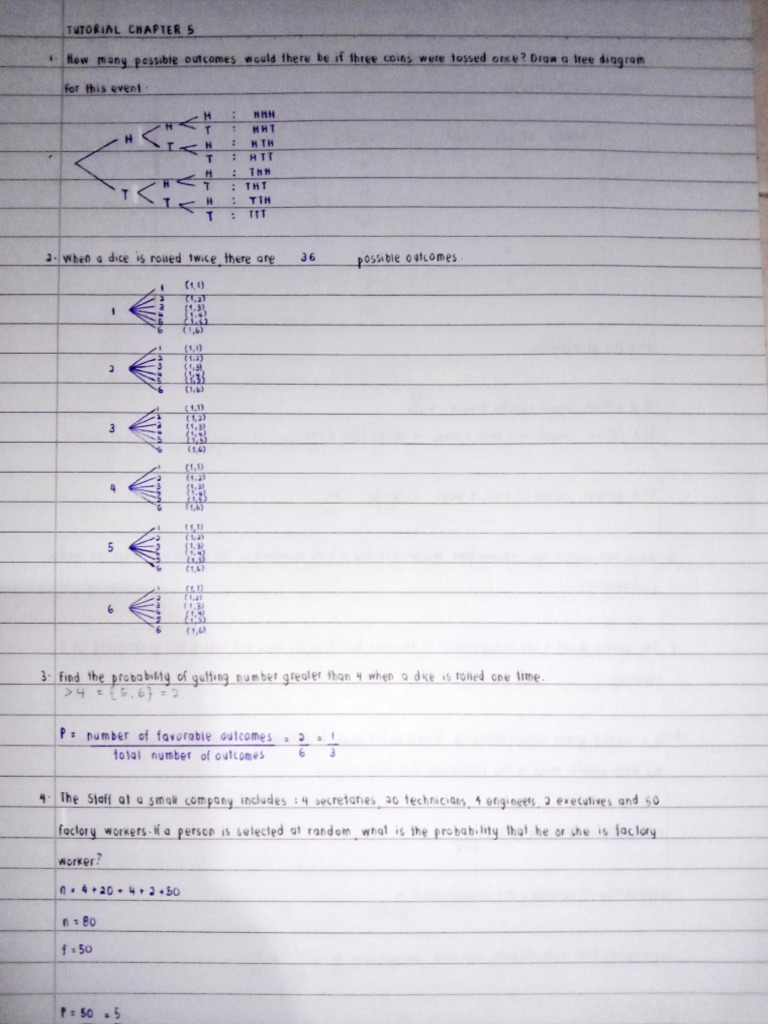 TUTORIAL CHAPTER 5
1. How many possible outcomes would there be if three coins were tossed once? Draw a tree diagram
for this event.
H : HHH
H
T : HHT
H
H : HTH
T
T : HTT
H : THH
H
T : THT
T
H : TTH
T
T : TTT
2. When a dice is rolled twice, there are 36 possible outcomes.
1 (1,1)
2 (1,2)
3 (1,3)
1
4 (1,4)
5 (1,5)
6 (1,6)
1 (1,1)
2 (1,2)
3 (1,3)
2
4 (1,4)
5 (1,5)
6 (1,6)
1 (1,1)
2 (1,2)
3
3 (1,3)
4 (1,4)
5 (1,5)
6 (1,6)
1 (1,1)
2 (1,2)
4
3 (1,3)
4 (1,4)
5 (1,5)
6 (1,6)
1 (1,1)
2 (1,2)
5
3 (1,3)
4 (1,4)
5 (1,5)
6 (1,6)
1 (1,1)
2 (1,2)
6
3 (1,3)
4 (1,4)
5 (1,5)
6 (1,6)
3. Find the probability of gutting number greater than 4 when a dice is rolled one time.
>4 = {5,6} = 2
P = number of favorable outcomes = 2 = 1
total number of outcomes 6 3
4. The staff at a small company includes : 4 secretaries, 20 technicians, 4 engineers, 2 executives and 50
factory workers. If a person is selected at random, what is the probability that he or she is factory
worker?
n = 4+20+4+2+50
n = 80
f = 50
P = 50 = 5